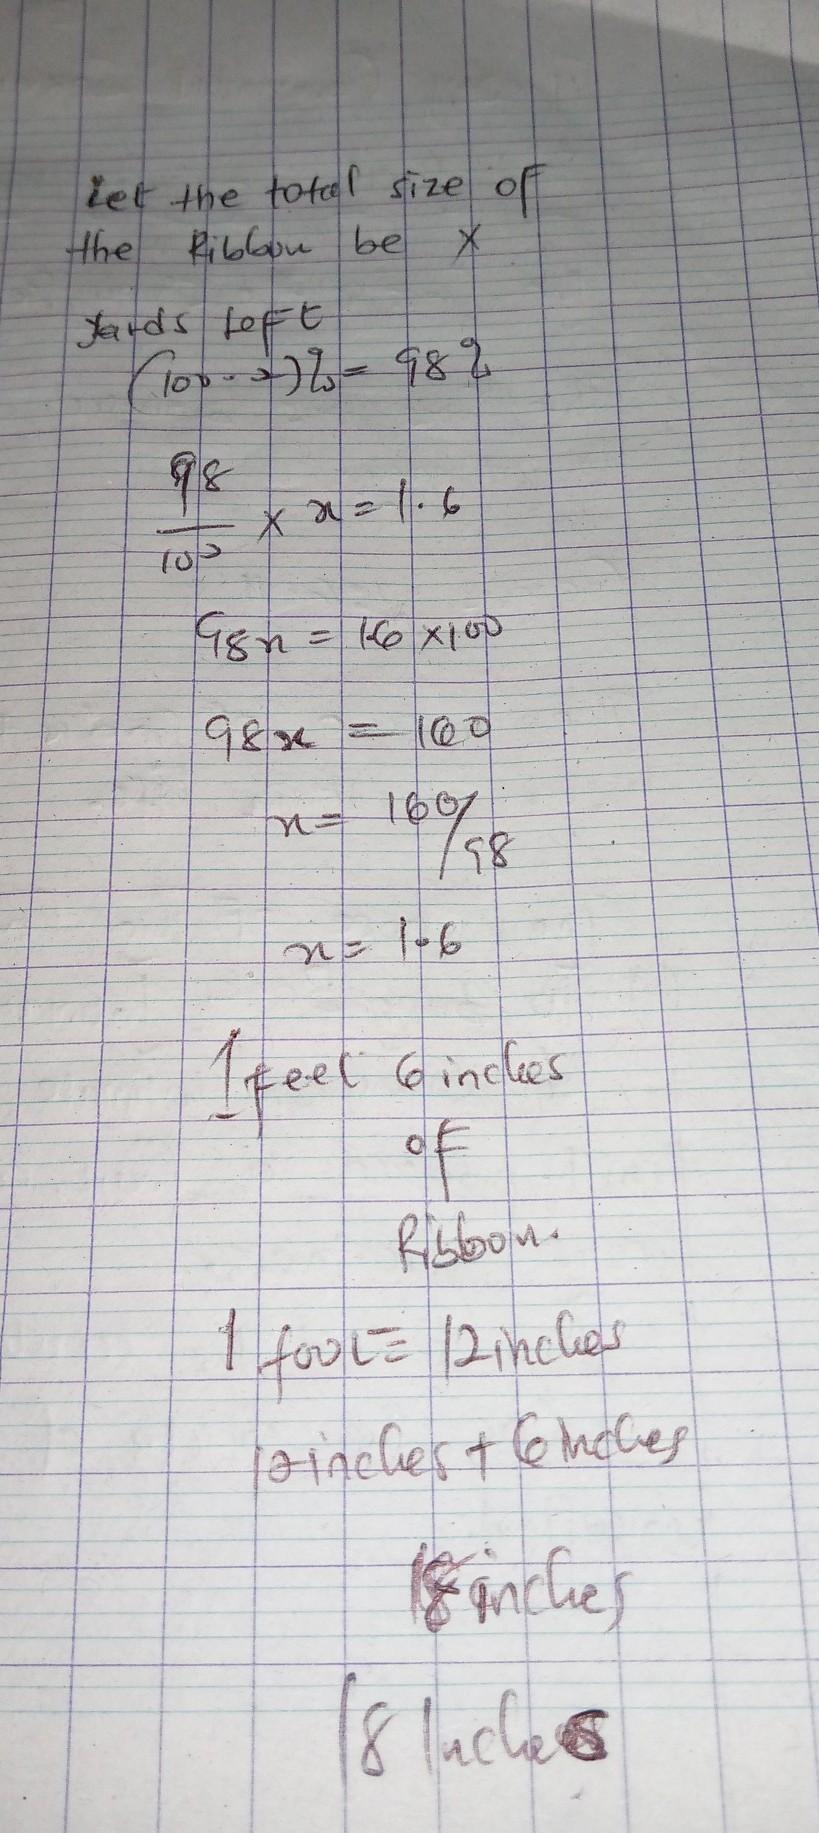 Let the total size of
the Ribbon be X
Yards Left
(100 - 2)% = 98%
98/100 × x = 1.6
98x = 1.6 × 100
98x = 160
x = 160/98
x = 1.6
1 feet 6 inches
of
Ribbon.
1 foot = 12 inches
12 inches + 6 inches
18 inches
18 Inches